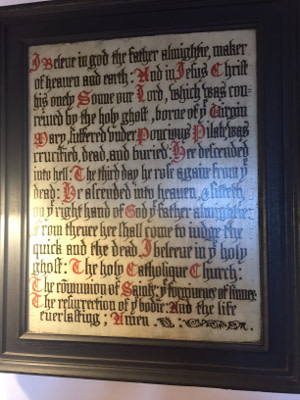 I Beleue in god the father almightie, maker
of heauen and earth: And in Jesus Christ
his onely Sonne our Lord, which was con-
ceiued by the holy ghost, borne of yͤ Uirgin
Mary, suffered vnder Poncious Pilate, was
crucified, dead, and buried: Hee descended
into hell: The third day he rose again from yͤ
dead: He ascended into heauen, & sitteth
on yͤ right hand of God yͤ father almightie:
From thence hee shall come to iudge the
quick and the dead. I beleeue in yͤ holy
ghost: The holy Catholique Church:
The cōmunion of Saints: yͤ forgiuenes of sinnes:
The resurrection of yͤ bodie: And the life
euerlasting; Amen.